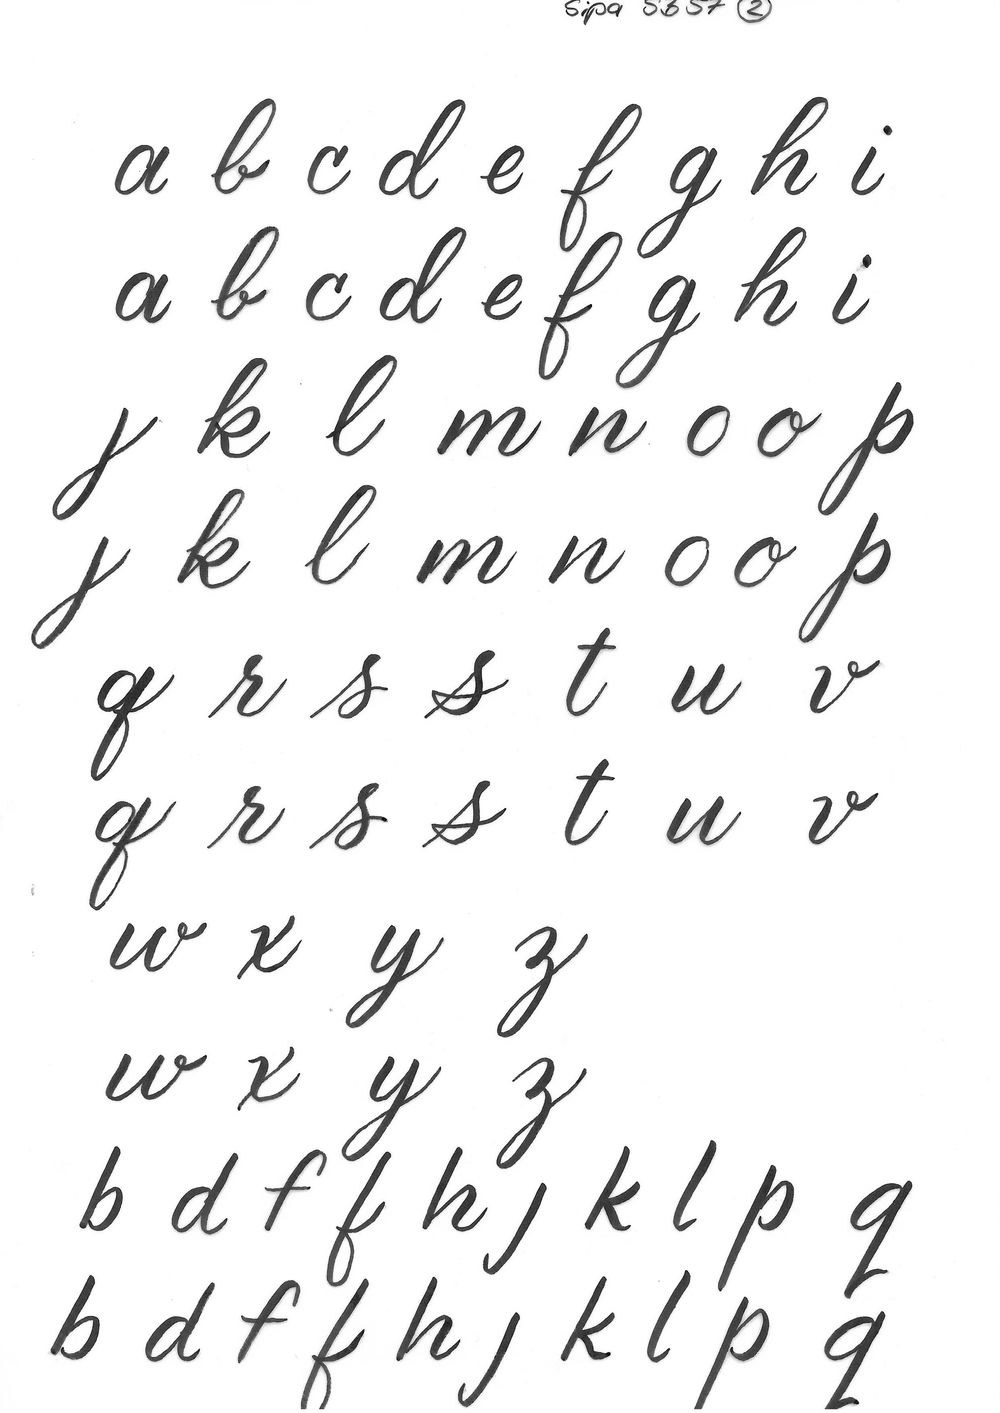 Sipa 5357 ②
a b c d e f g h i
a b c d e f g h i
j k l m n o o p
j k l m n o o p
q r s s t u v
q r s s t u v
w x y z
w x y z
b d f f h j k l p q
b d f f h j k l p q